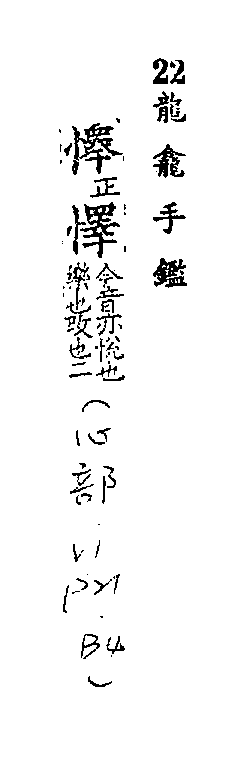 22龍龕手鑑
正懌今音亦悅也
樂也改也二
(心部.V1
P21.
B4)